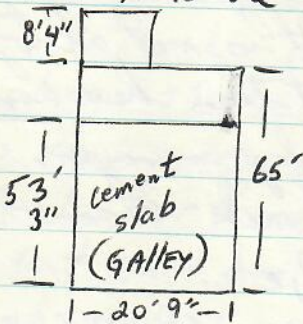 8'4"
53'
3"
65'
cement
slab
(GAllEY)
20'9"